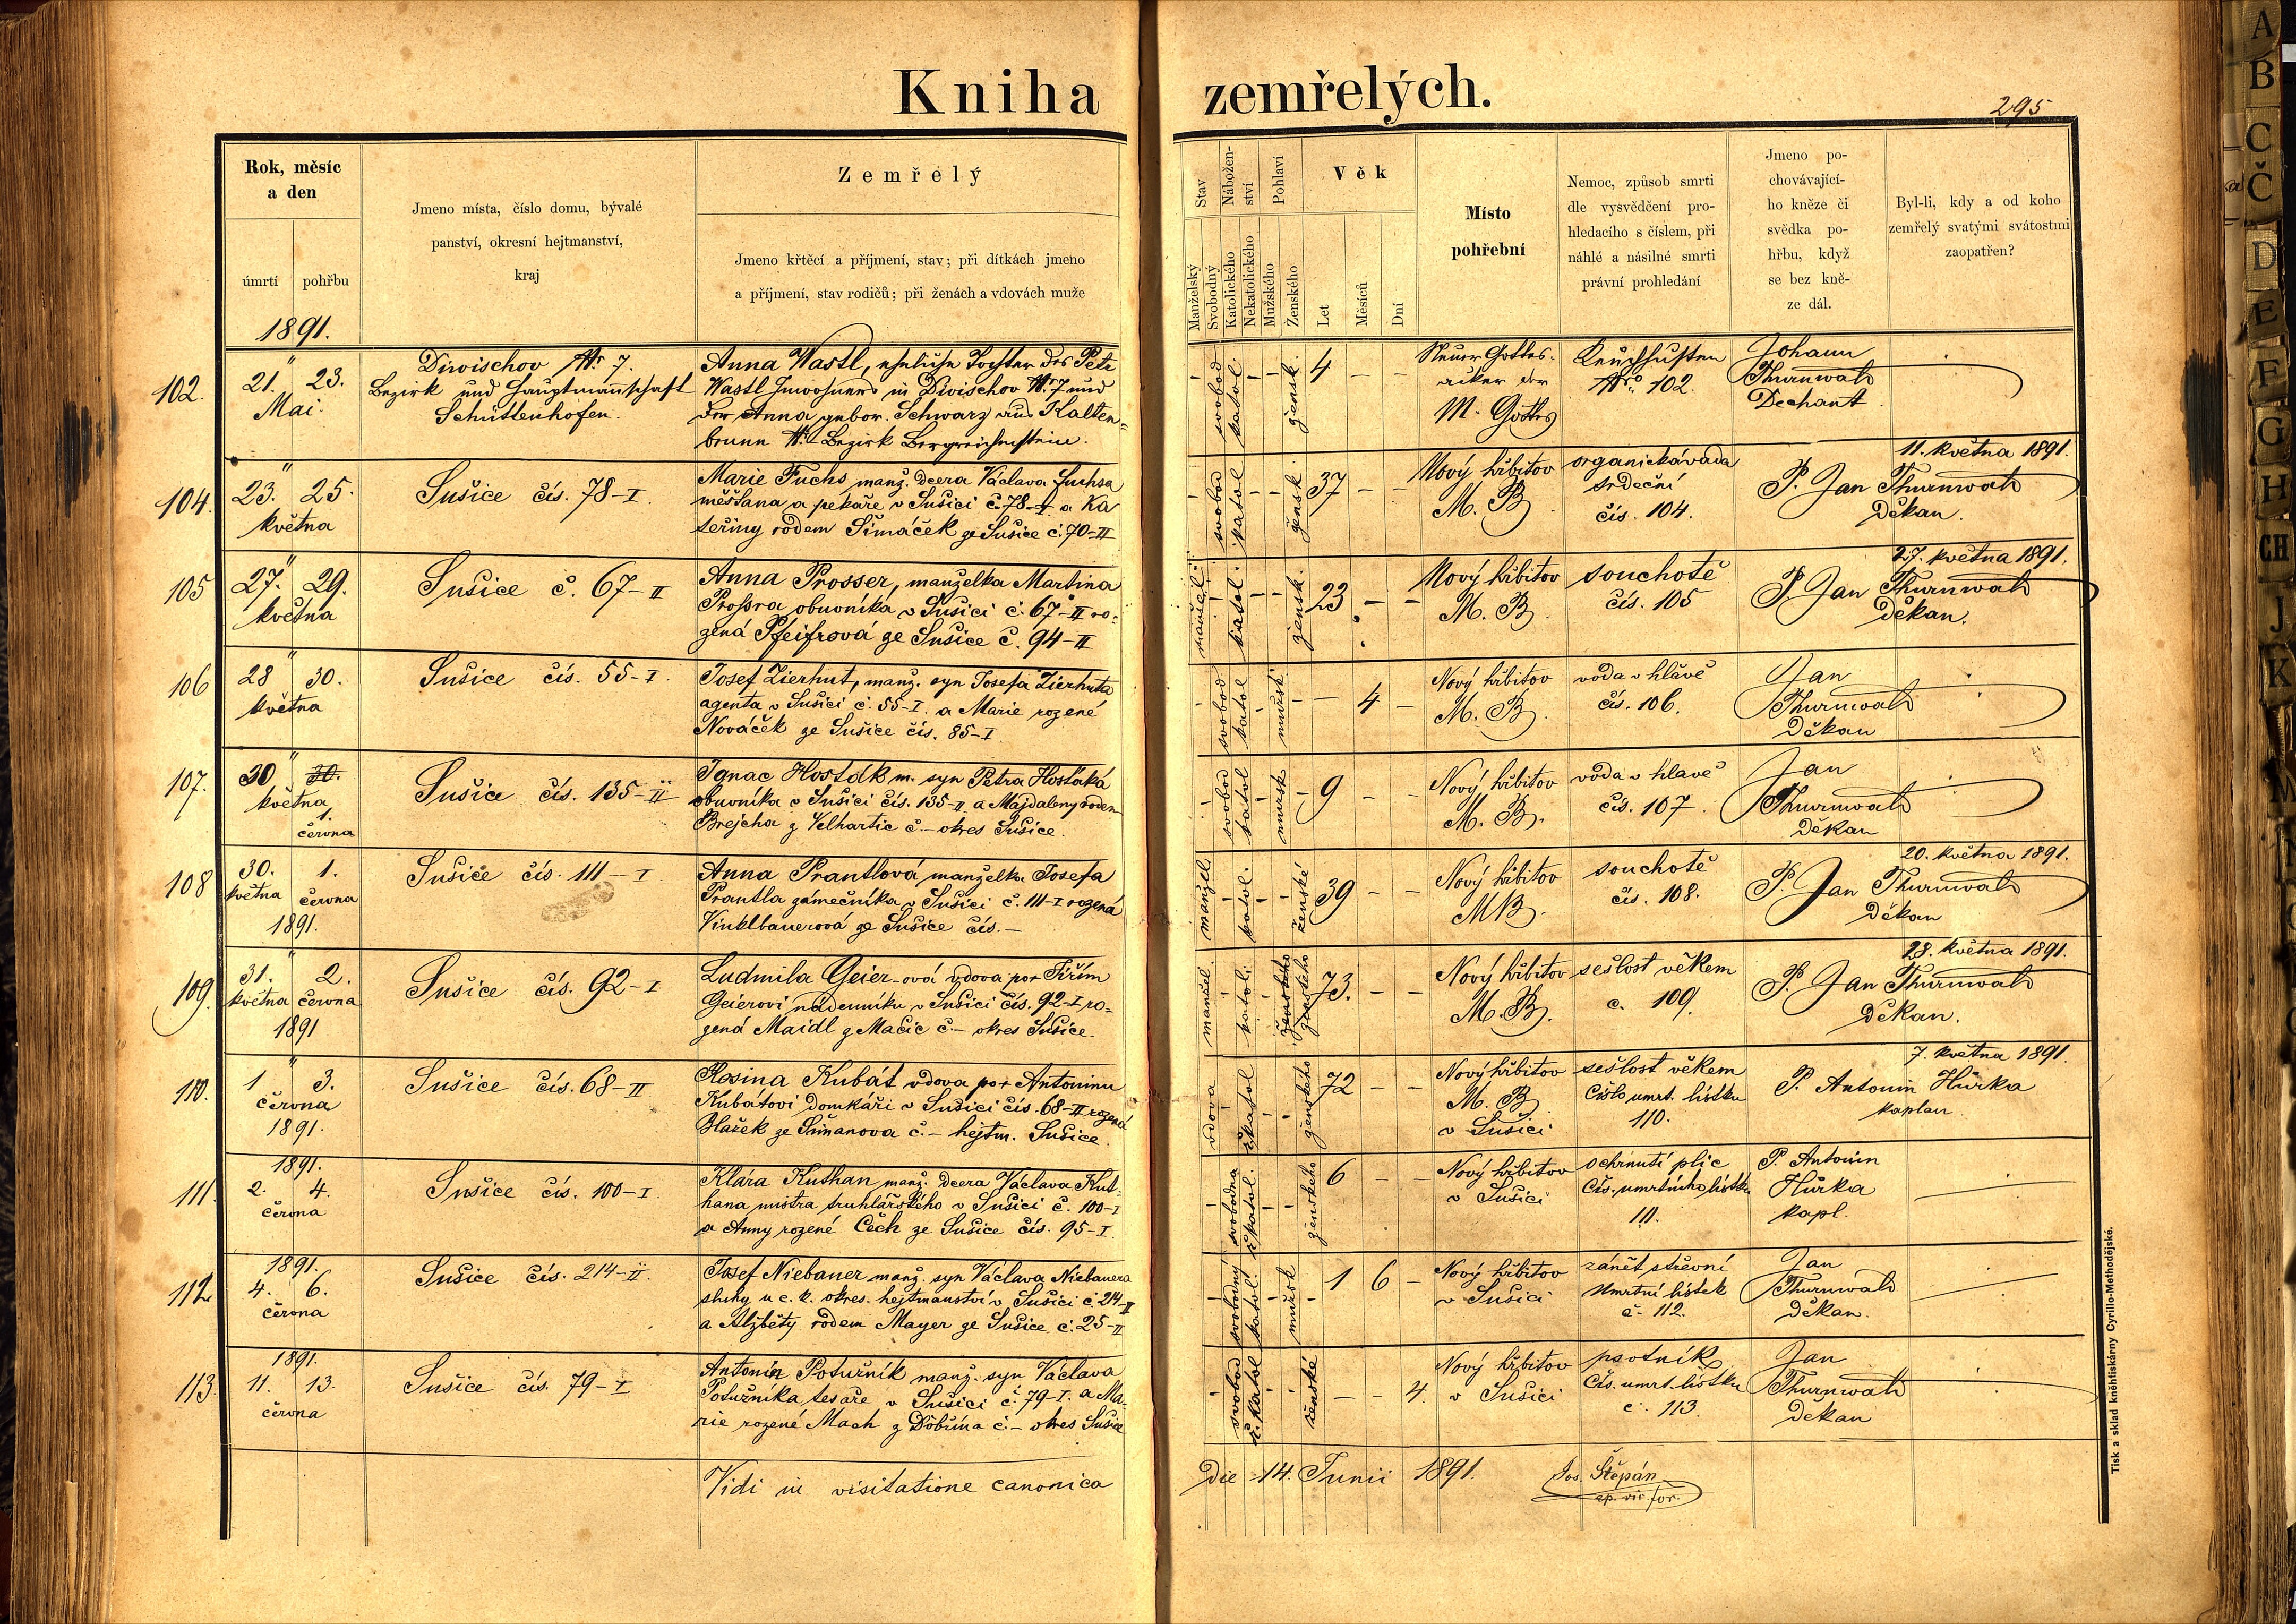 Kniha zemřelých.
295
Rok, měsíc
a den
úmrtí pohřbu
1891.
Jmeno místa, číslo domu, bývalé
panství, okresní hejtmanství,
kraj
Zemřelý
Jmeno křtěcí a příjmení, stav; při dítkách jmeno
a příjmení, stav rodičů; při ženách a vdovách muže
Stav
Manželský
Svobodný
Nábožen-
ství
Katolického
Nekatolického
Pohlaví
Mužského
Ženského
Věk
Let
Měsíců
Dní
Místo
pohřební
Nemoc, způsob smrti
dle vysvědčení pro-
hledacího s číslem, při
náhlé a násilné smrti
právní prohledání
Jmeno po-
chovávající-
ho kněze či
svědka po-
hřbu, když
se bez kně-
ze dál.
Byl-li, kdy a od koho
zemřelý svatými svátostmi
zaopatřen?
102.
21. 23.
Mai.
Diwischov Nr. 7.
Bezirk und Hauptmannschaft
Schüttenhofen.
Anna Wastl, eheliche Tochter des Petr
Wastl Inwohners in Diwischov Nr. 7 und
der Anna gebor. Schwarz aus Kalten-
brunn Nr. Bezirk Bergreichenstein.
svobod.
katol.
žensk.
4 – –
Neuer Gottes-
acker der
M. Gottes
Keuchhusten
Nro. 102.
Johann
Thurnwald
Dechant
104.
23. 25.
května
Sušice čís. 78–I.
Marie Fuchs manž. dcera Václava Fuchsa
měšťana a pekaře v Sušici č. 78–I a Ka
teřiny rodem Šimáček ze Sušice č. 70–II
svobod
katol
žensk.
37 – –
Nový hřbitov
M. B.
organická vada
srdeční
čís. 104.
11. května 1891.
P. Jan Thurnwald
Děkan.
105
27. 29.
května
Sušice č. 67–II
Anna Prosser, manželka Martina
Prossra obuvníka v Sušici č. 67–II ro-
zená Pfeifrová ze Sušice č. 94–II
manžel.
katol.
žensk.
23 – –
Nový hřbitov
M. B.
souchotě
čís. 105
27. května 1891.
P. Jan Thurnwald
Děkan.
106
28 30.
května
Sušice čís. 55–I.
Josef Zierhut, manž. syn Josefa Zierhuta
agenta v Sušici č. 55–I. a Marie rozené
Nováček ze Sušice čís. 85–I
svobod
katol
mužsk.
– 4 –
Nový hřbitov
M. B.
voda v hlavě
čís. 106.
Jan
Thurnwald
Děkan
107.
30 30.
května
1.
června
Sušice čís. 135–II
Ignac Hosták m. syn Petra Hostáka
obuvníka v Sušici čís. 135–II a Majdaleny roden
Brejcha z Velhartic č.– okres Sušice.
svobod
katol
mužsk
9 – –
Nový hřbitov
M. B.
voda v hlavě
čís. 107.
Jan
Thurnwald
Děkan
108
30. 1.
května června
1891.
Sušice čís. 111–I
Anna Prantlová manželka Josefa
Prantla zámečníka v Sušici č. 111–I rozená
Vinklbauerová ze Sušice čís.–
manžel.
katol.
ženské
39 – –
Nový hřbitov
M B.
souchotě
čís. 108.
20. května 1891.
P. Jan Thurnwald
Děkan
109.
31. 2.
května června
1891
Sušice čís. 92–I
Ludmila Geier-ová vdova po+ Jiřím
Geierovi nádenníku v Sušici čís. 92–I ro-
zená Maidl z Mačic č.– okres Sušice.
manžel.
katoli.
ženského
ženského
73. – –
Nový hřbitov
M. B.
sešlost věkem
č. 109.
28. května 1891.
P. Jan Thurnwald
Děkan.
110.
1 3.
června
1891.
Sušice čís. 68–II
Rosina Kubát vdova po+ Antonínu
Kubátovi domkáři v Sušici čís. 68–II rozená
Blažek ze Šimanova č.– hejtm. Sušice.
vdova
ř.katol
ženského
72 – –
Nový hřbitov
M. B.
v Sušici
sešlost věkem
Číslo umrt. lístku
110.
7. května 1891.
P. Antonín Hůrka
kaplan.
111.
1891.
2. 4.
června
Sušice čís. 100–I.
Klára Kuthan manž. dcera Václava Kut-
hana mistra truhlářského v Sušici č. 100–I
a Anny rozené Čech ze Sušice čís. 95–I.
svobodna
ř.katol.
ženského
6 – –
Nový hřbitov
v Sušici
ochrnutí plic
Čís. umrtního lístku
111.
P. Antonín
Hůrka
kapl.
112
1891.
4. 6.
června
Sušice čís. 214–II.
Josef Niebauer manž. syn Václava Niebauera
sluhy u c. k. okres. hejtmanství v Sušici č. 214–II
a Alžběty rodem Mayer ze Sušice č. 25–II
svobodný
katol.
mužsk
1 6 –
Nový hřbitov
v Sušici
zánět střevní
Umrtní lístek
č. 112.
Jan
Thurnwald
Děkan.
113.
1891.
11. 13.
června
Sušice čís. 79–I
Antonín Potužník manž. syn Václava
Potužníka tesaře v Sušici č. 79–I. a Ma-
rie rozené Mach z Dobřína č.– okres Sušice
svobod
ř. katol
ženské
– – 4.
Nový hřbitov
v Sušici
psotník
Čís. umrt. lístku
č. 113.
Jan
Thurnwald
Děkan
Vidi in visitatione canonica die 14. Junii 1891. Jos. Štěpán
ep. vic. for.
Tisk a sklad kněhtiskárny Cyrillo-Methodějské.
A
B
C
Č
D
E
F
G
H
CH
J
K